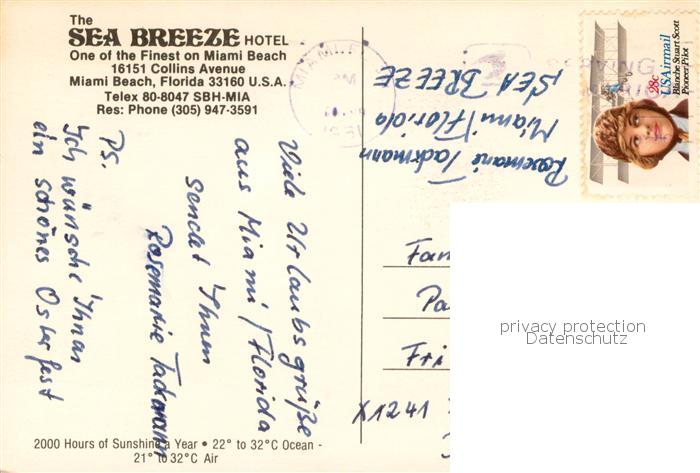 The
SEA BREEZE HOTEL
One of the Finest on Miami Beach
16151 Collins Avenue
Miami Beach, Florida 33160 U.S.A.
Telex 80-8047 SBH-MIA
Res: Phone (305) 947-3591
Viele Urlaubsgrüße
aus Miami/Florida
sendet Ihnen
Rosemarie Tackmann
PS.
Ich wünsche Ihnen
ein schönes Osterfest
2000 Hours of Sunshine a Year • 22° to 32°C Ocean -
21° to 32°C Air
Rosemarie Tackmann
Miami/Florida
SEA BREEZE
MIAMI, F
PM
28c
USAirmail
Blanche Stuart Scott
Pioneer Pilot
Fam
Pa
Fri
X1241
privacy protection
Datenschutz